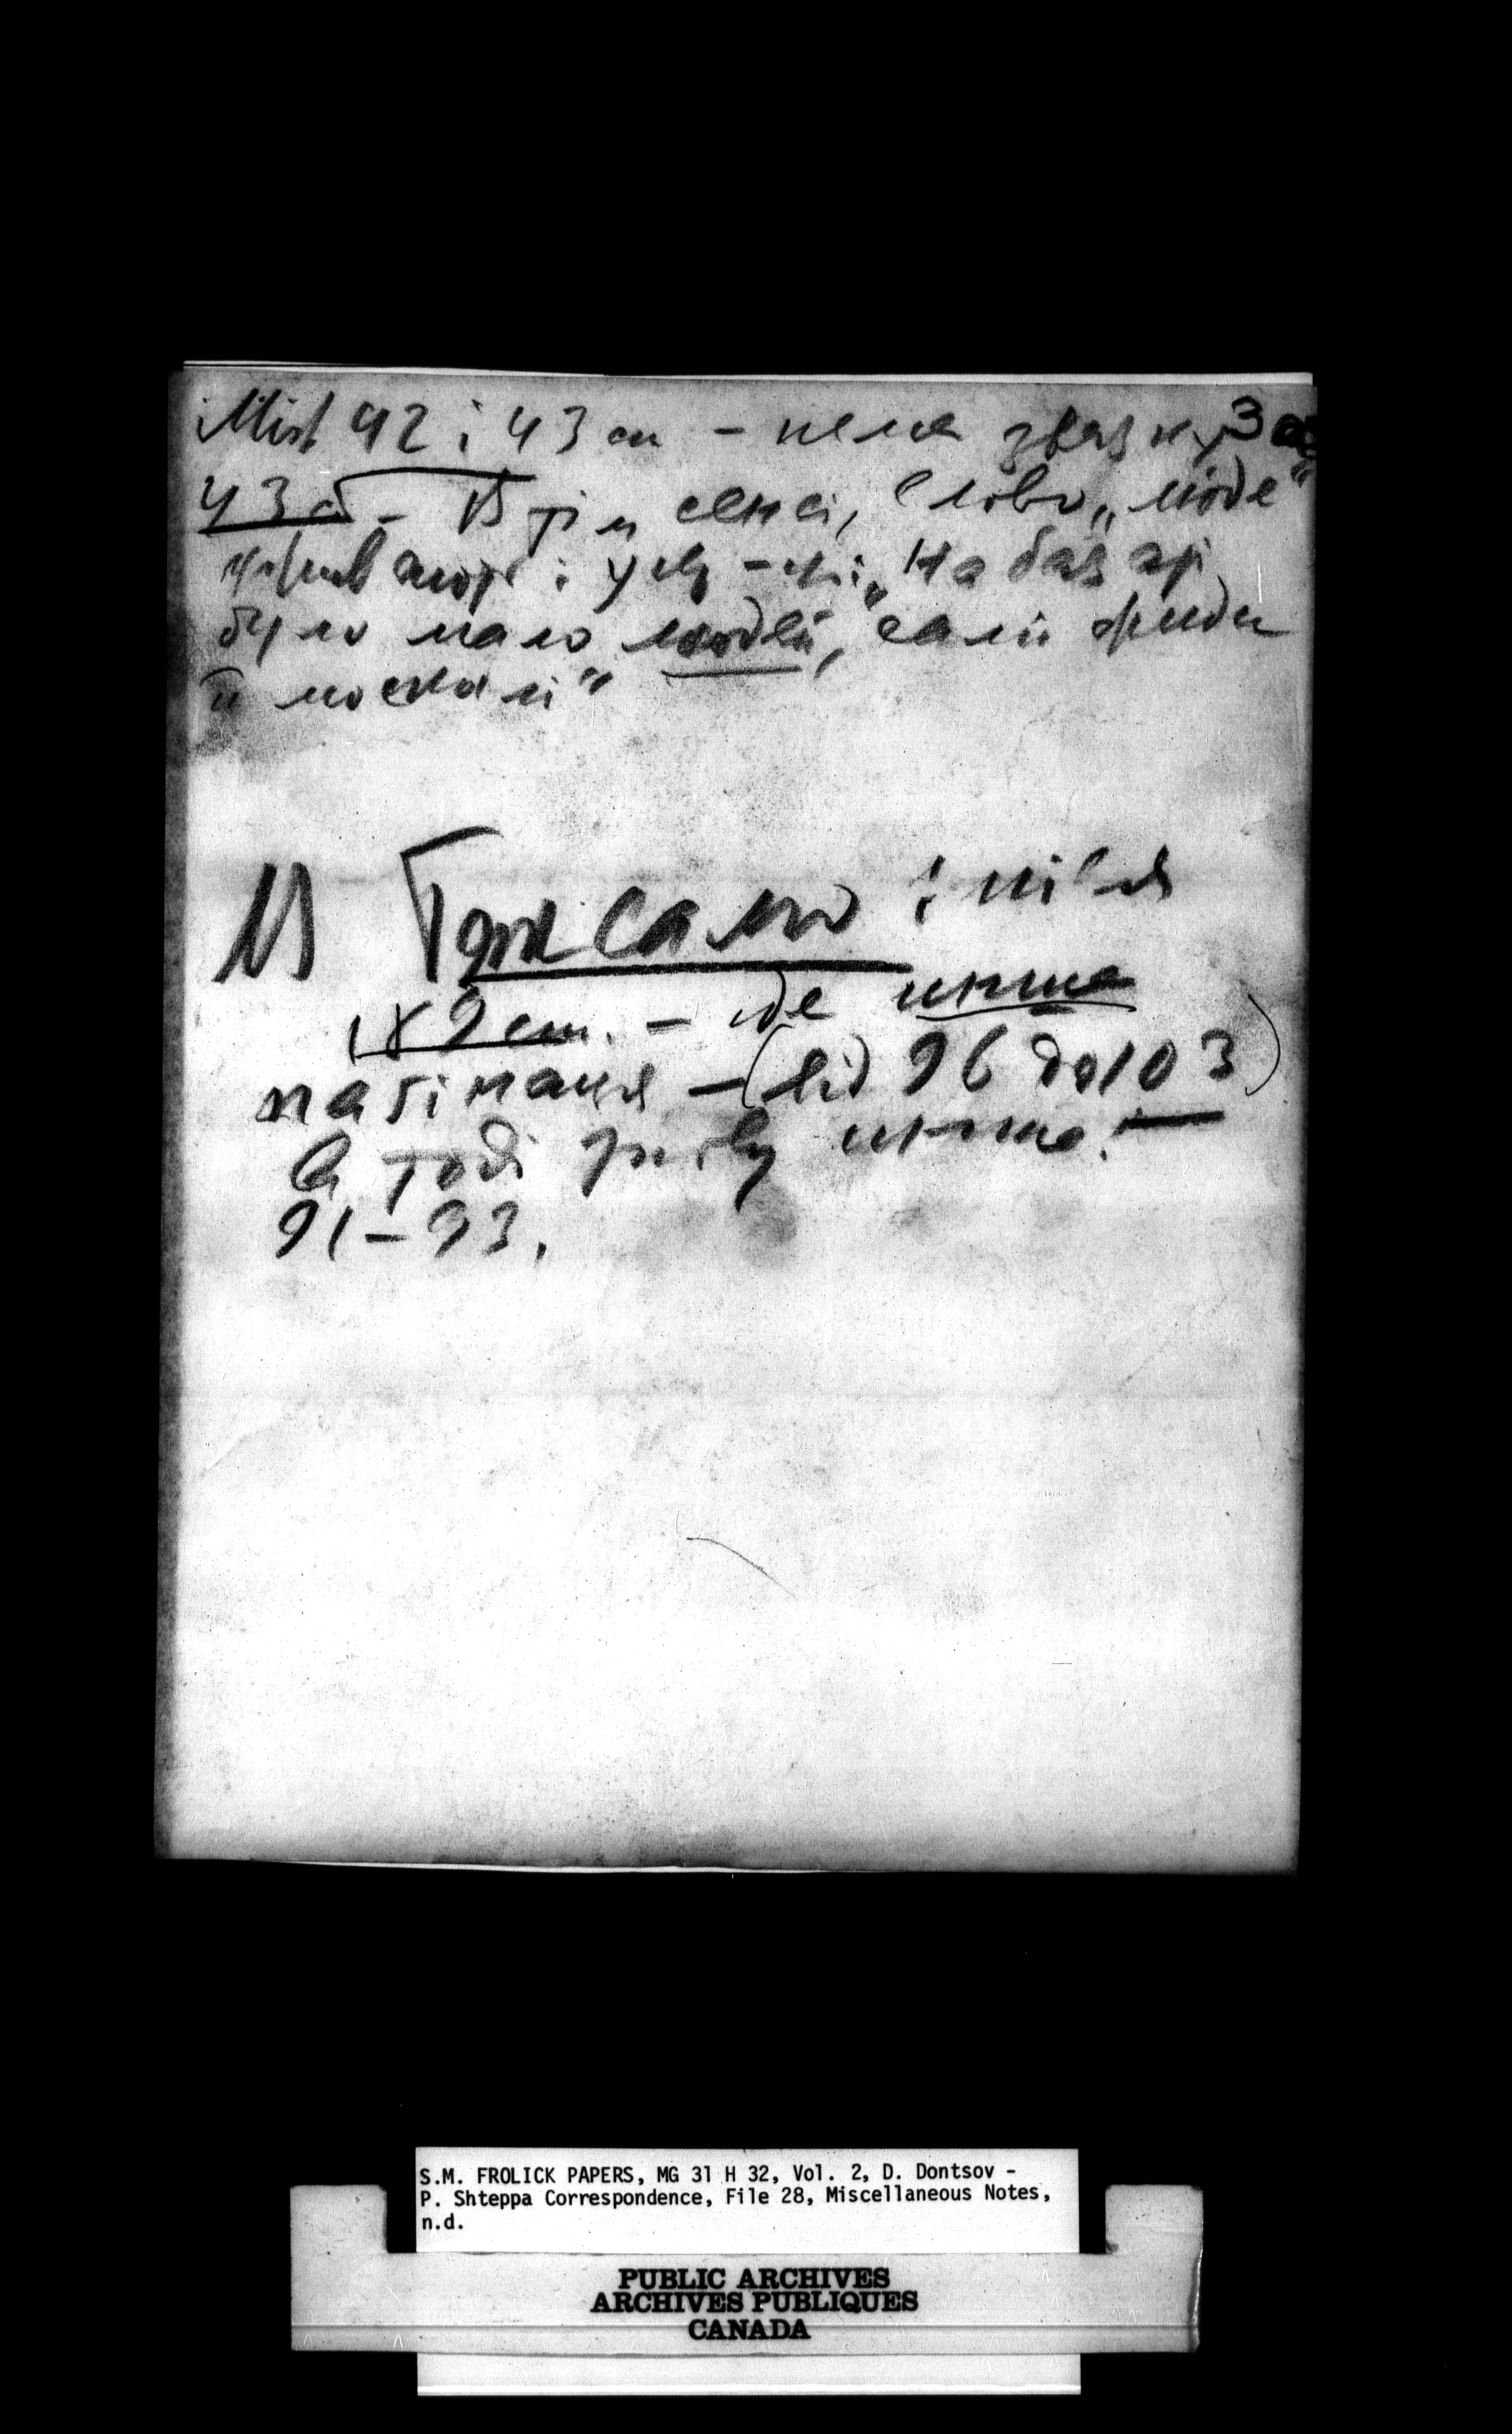 Між 42 і 43 ст – нема звязку 3
43 ст – В тім сенсі, слово „люде"
і у „На базарі
було мало людей, самі жиди
й москалі"
Так само і після
9 ст. – де инша
пагінація – (від 96 до 103)
а тоді знову инша:
91–93.
S.M. FROLICK PAPERS, MG 31 H 32, Vol. 2, D. Dontsov -
P. Shteppa Correspondence, File 28, Miscellaneous Notes,
n.d.
PUBLIC ARCHIVES
ARCHIVES PUBLIQUES
CANADA